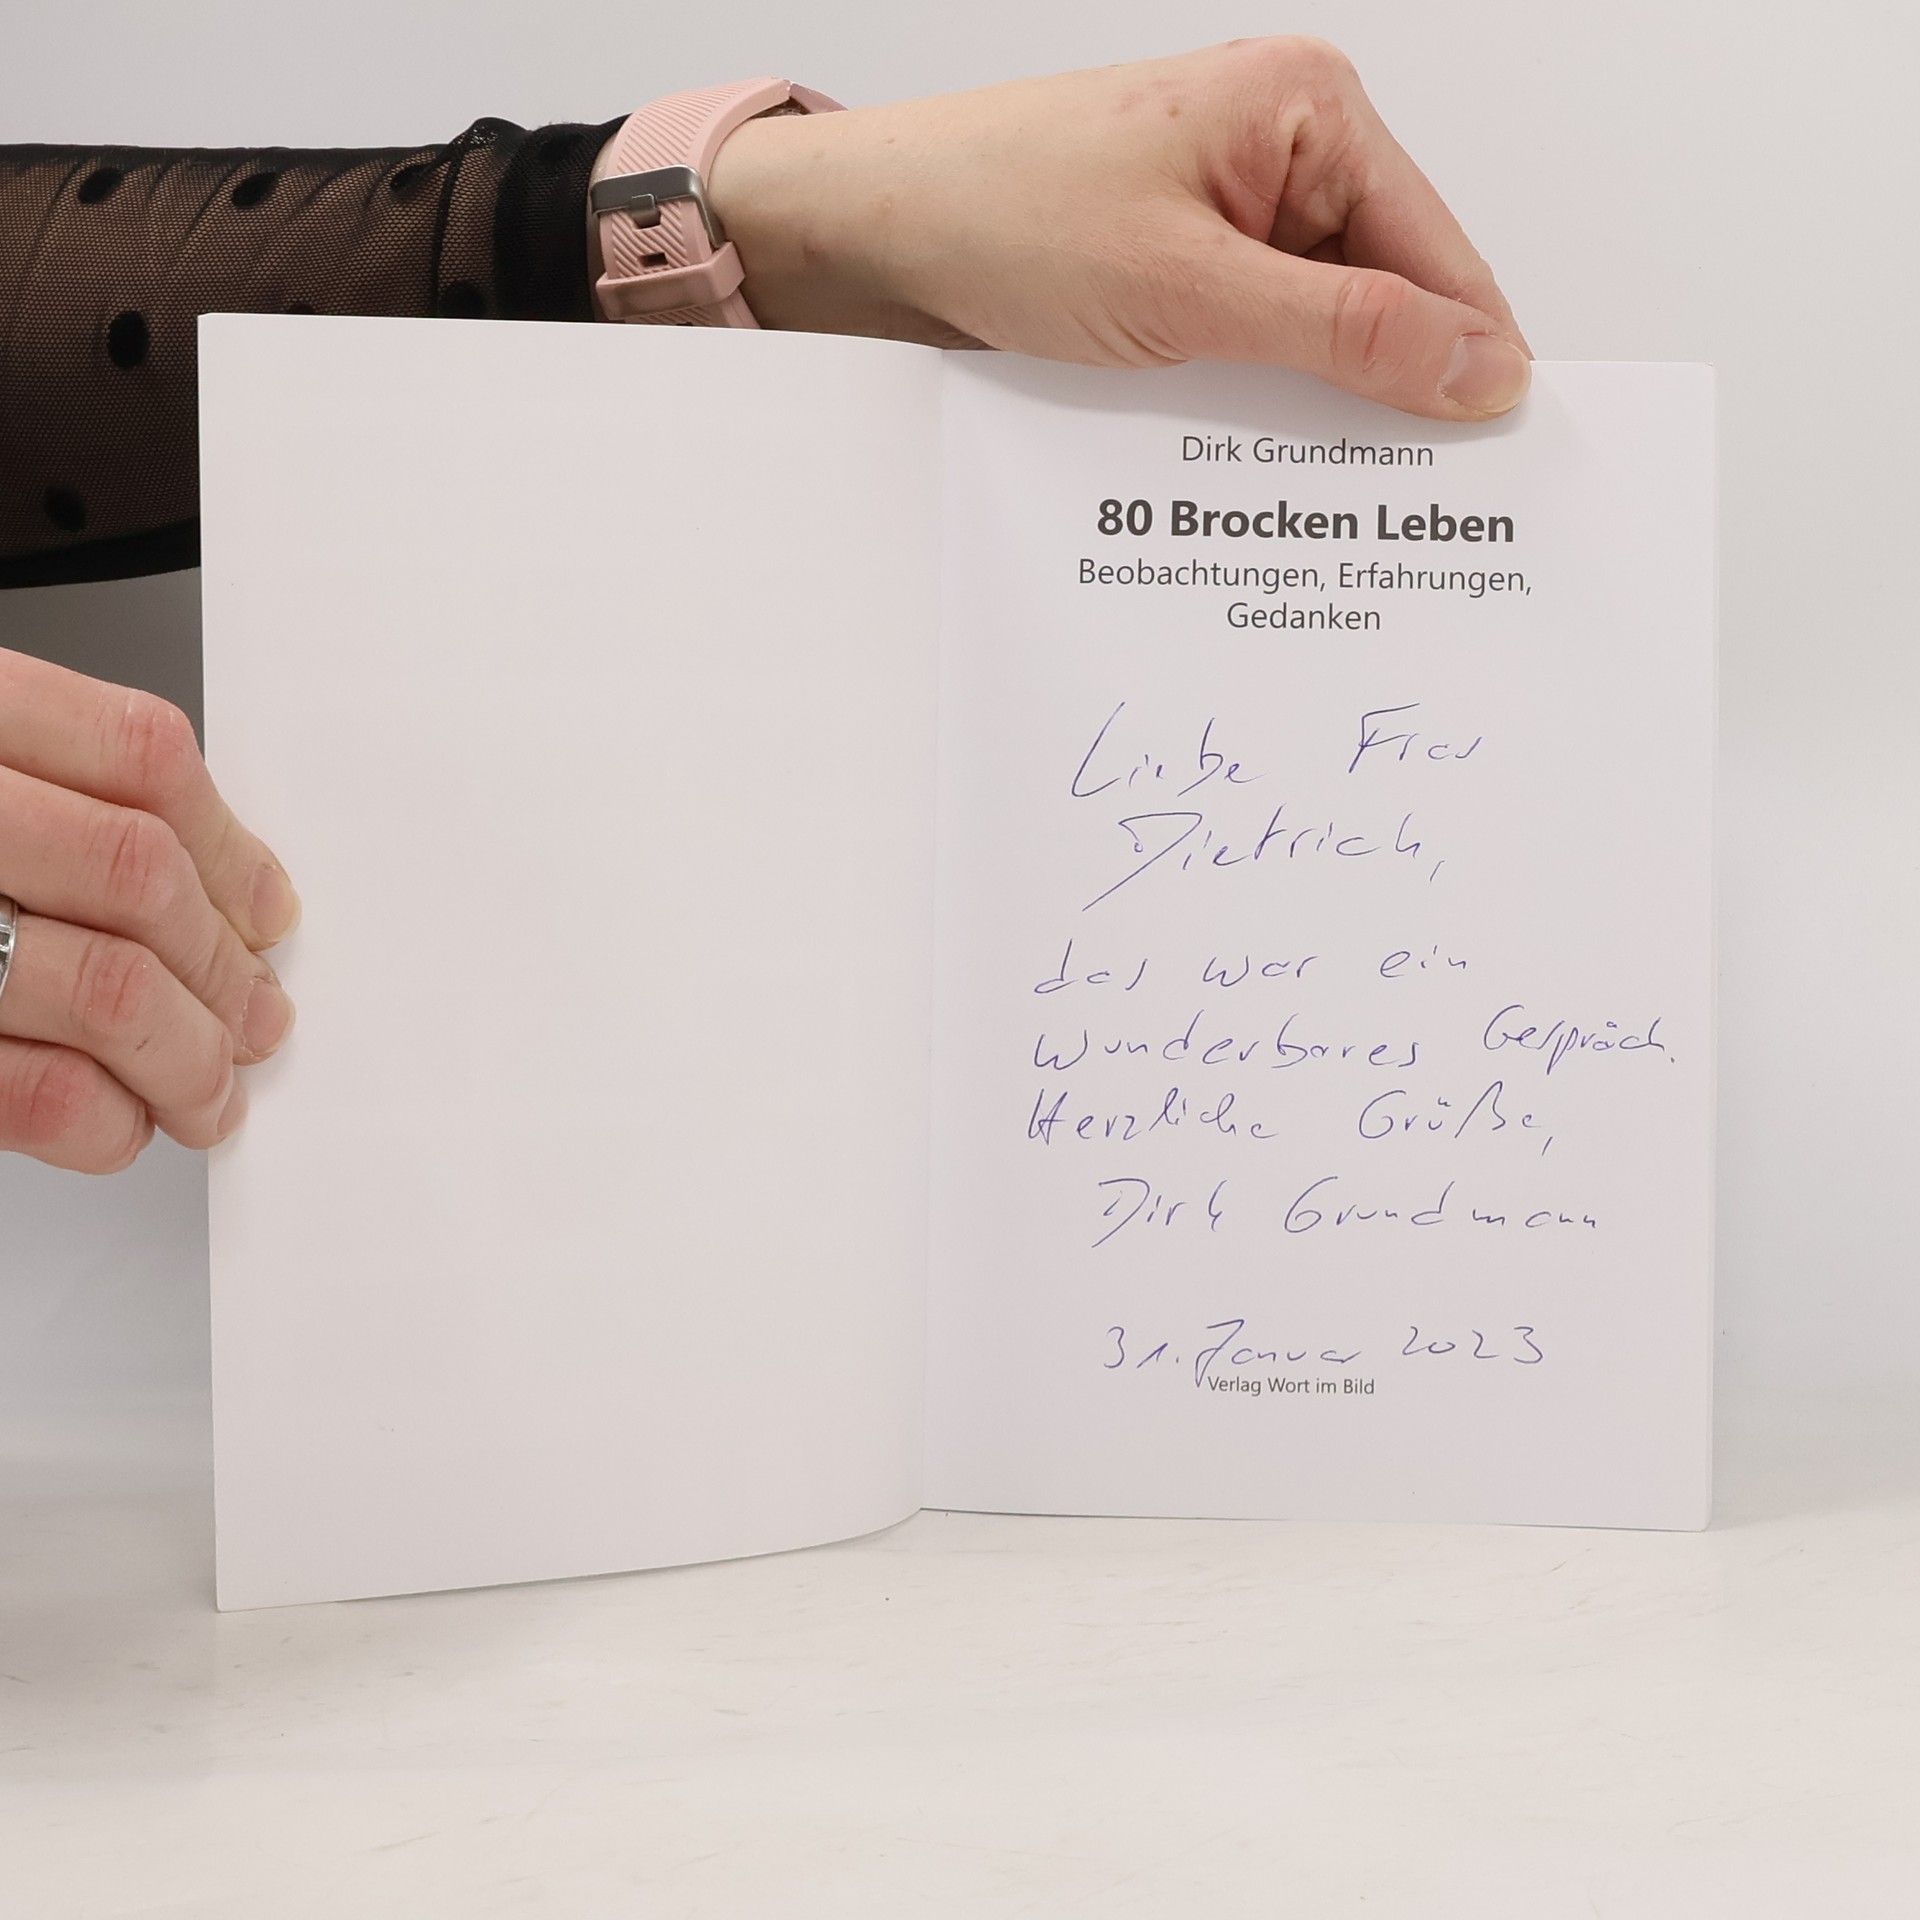 Dirk Grundmann
80 Brocken Leben
Beobachtungen, Erfahrungen,
Gedanken
Liebe Frau
Dietrich,
das war ein
wunderbares Gespräch.
Herzliche Grüße,
Dirk Grundmann
31. Januar 2023
Verlag Wort im Bild